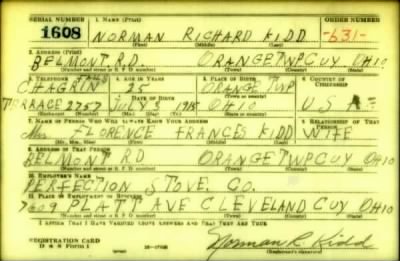 SERIAL NUMBER 1. NAME (Print) ORDER NUMBER
1608 NORMAN RICHARD KIDD -631-
(First) (Middle) (Last)
2. ADDRESS (Print)
BELMONT RD. ORANGE TWP CUY OHIO
(Number and street or R. F. D. number) (Town) (County) (State)
3. TELEPHONE 4. AGE IN YEARS 5. PLACE OF BIRTH 6. COUNTRY OF CITIZENSHIP
CHAGRIN FALLS 25 ORANGE TWP
DATE OF BIRTH
TERRACE 2757 JULY 3 1915 OHIO U S A
(Exchange) (Number) (Mo.) (Day) (Yr.) (State or country)
7. NAME OF PERSON WHO WILL ALWAYS KNOW YOUR ADDRESS 8. RELATIONSHIP OF THAT PERSON
Mrs FLORENCE FRANCES KIDD WIFE
(Mr., Mrs., Miss) (First) (Middle) (Last)
9. ADDRESS OF THAT PERSON
BELMONT RD ORANGE TWP CUY OHIO
(Number and street or R. F. D. number) (Town) (County) (State)
10. EMPLOYER'S NAME
PERFECTION STOVE. CO.
11. PLACE OF EMPLOYMENT OR BUSINESS
7609 PLATT AVE CLEVELAND CUY OHIO
(Number and street or R. F. D. number) (Town) (County) (State)
I AFFIRM THAT I HAVE VERIFIED ABOVE ANSWERS AND THAT THEY ARE TRUE.
REGISTRATION CARD
D. S. S. Form 1 Norman R. Kidd
(Registrant's signature)